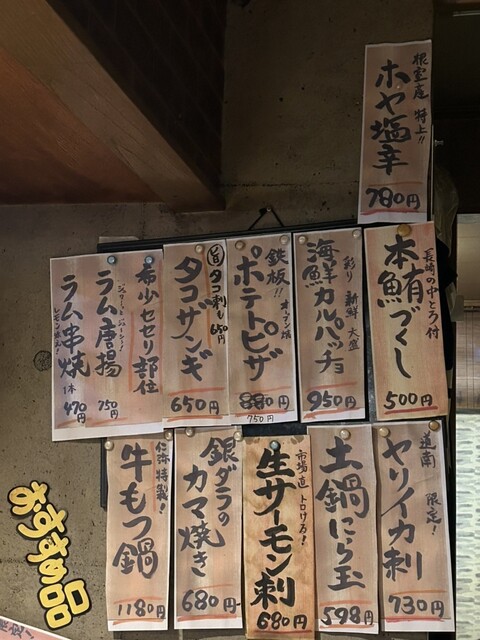 根室産 特上!!
ホヤ塩辛
780円
長崎の中とろ付
本鮪づくし
500円
彩り 新鮮 大盛
海鮮カルパッチョ
950円
鉄板!! オーブン焼
ポテトピザ
880円
750円
旨 タコ刺も650円
タコザンギ
650円
希少セセリ部位
ラム唐揚
750円
ラム串焼
一本 470円
道南 限定!
ヤリイカ刺
730円
土鍋にら玉
598円
市場直 トロける!
生サーモン刺
680円
銀ダラのカマ焼き
680円
特製!
牛もつ鍋
1180円
おすすめ品